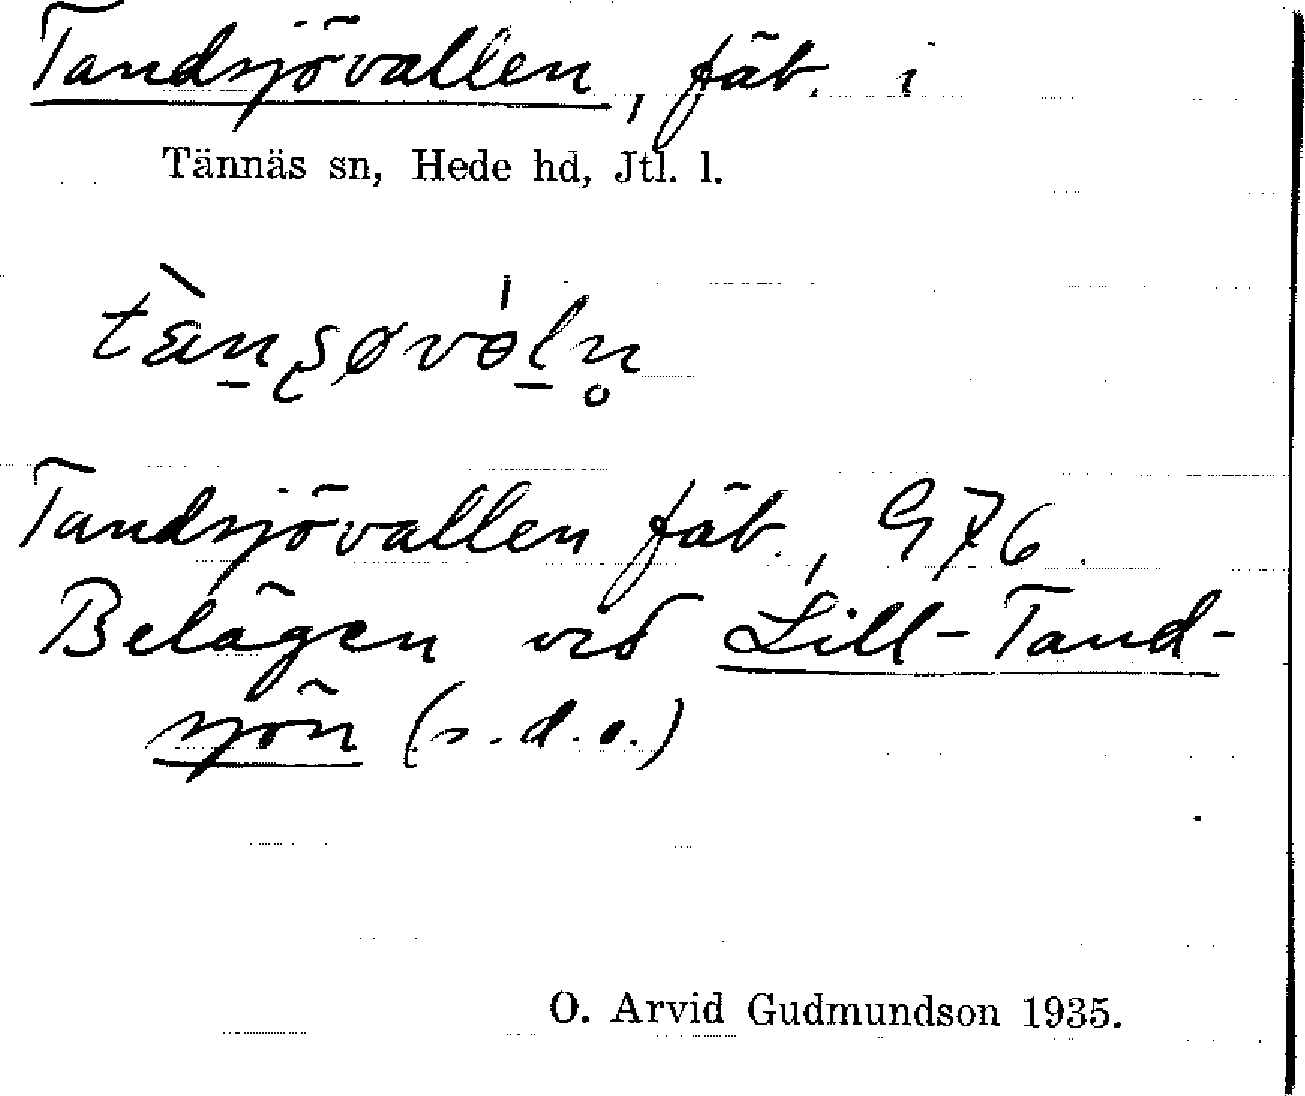 Tandsjövallen, fäb. i
Tännäs sn, Hede hd, Jtl. l.
Tandsjövallen fäb., G76.
Belägen vid Lill-Tand-
sjön (s.d.o.)
O. Arvid Gudmundson 1935.